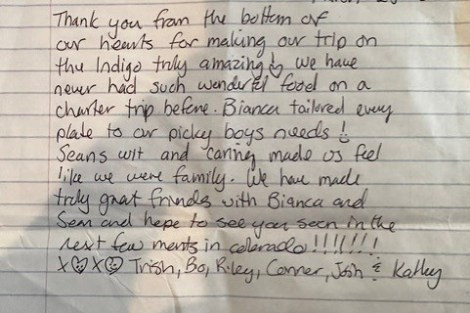 Thank you from the bottom of
our hearts for making our trip on
the Indigo truly amazing! We have
never had such wonderful food on a
charter trip before. Bianca tailored every
plate to our picky boys needs!
Seans wit and caring made us feel
like we were family. We have made
truly great friends with Bianca and
Sean and hope to see you soon in the
next few months in colorado!!!!!!!!
X♡X☺ Trish, Bo, Riley, Conner, Josh & Kathy